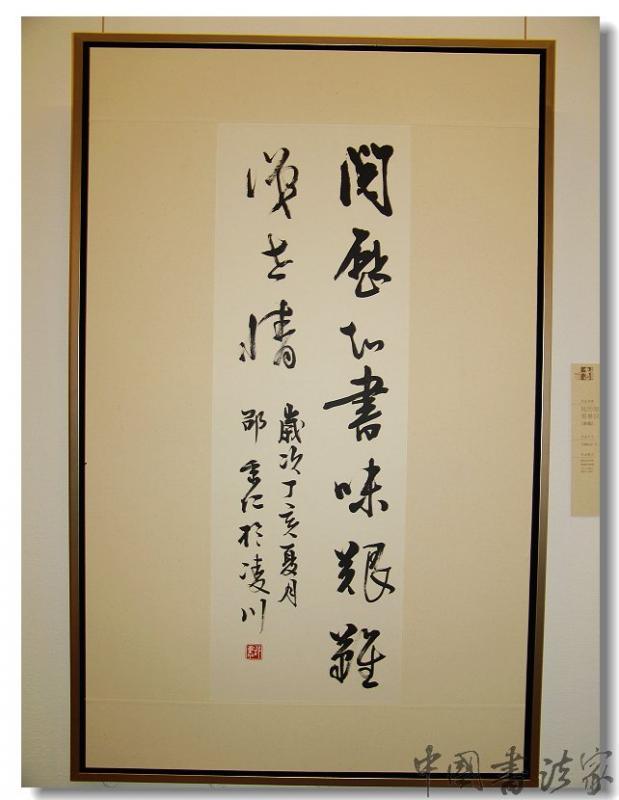 閱歷知書味艱難
識世情
歲次丁亥夏月
邵秉仁於凌川
中國書法家